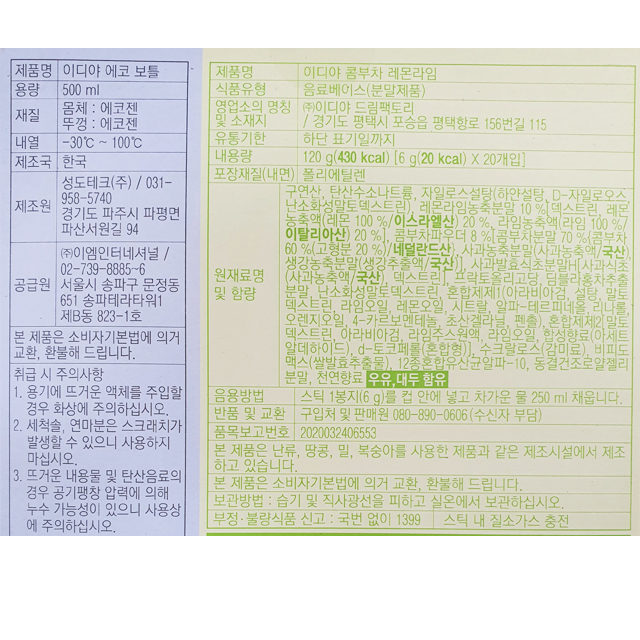 제품명 이디야 에코 보틀
용량 500 ml
재질 몸체 : 에코젠
뚜껑 : 에코젠
내열 -30℃ ~ 100℃
제조국 한국
제조원 성도테크(주) / 031-
958-5740
경기도 파주시 파평면
파산서원길 94
공급원 ㈜이엠인터네셔널 /
02-739-8885~6
서울시 송파구 문정동
651 송파테라타워1
제B동 823-1호
본 제품은 소비자기본법에 의거
교환, 환불해 드립니다.
취급 시 주의사항
1. 용기에 뜨거운 액체를 주입할
경우 화상에 주의하십시오.
2. 세척솔, 연마분은 스크래치가
발생할 수 있으니 사용하지
마십시오.
3. 뜨거운 내용물 및 탄산음료의
경우 공기팽창 압력에 의해
누수 가능성이 있으니 사용상
에 주의하십시오.
제품명 이디야 콤부차 레몬라임
식품유형 음료베이스(분말제품)
영업소의 명칭 및 소재지 ㈜이디야 드림팩토리
/ 경기도 평택시 포승읍 평택항로 156번길 115
유통기한 하단 표기일까지
내용량 120 g(430 kcal) [6 g(20 kcal) X 20개입]
포장재질(내면) 폴리에틸렌
원재료명 및 함량
구연산, 탄산수소나트륨, 자일로스설탕(하얀설탕, D-자일로오스,
난소화성말토덱스트린), 레몬라임농축분말 10 %[덱스트린, 레몬
농축액(레몬 100 %/이스라엘산) 20 %, 라임농축액(라임 100 %/
이탈리아산) 20 %], 콤부차파우더 8 %[콤부차분말 70 %(콤부차
60 %(고형분 20 %/네덜란드산), 사과농축분말(사과농축액/국산),
생강농축분말(생강추출액/국산)], 사과발효식초분말H(사과식초
(사과농축액/국산), 덱스트린], 프락토올리고당, 덤블링홍차추출
분말, 난소화성말토덱스트린, 혼합제제1(아라비아검, 설탕, 말토
덱스트린, 라임오일, 레몬오일, 시트랄, 알파-테르피네올, 리나롤,
오렌지오일, 4-카르보멘테놀, 초산겔라닐, 펜촐), 혼합제제2[말토
덱스트린, 아라비아검, 라임주스원액, 라임오일, 합성향료(아세트
알데하이드), d-토코페롤(혼합형)], 수크랄로스(감미료), 비피도
맥스(쌀발효추출물), 12종혼합유산균알파-10, 동결건조로얄젤리
분말, 천연향료 우유,대두 함유
음용방법 스틱 1봉지(6 g)를 컵 안에 넣고 차가운 물 250 ml 채웁니다.
반품 및 교환 구입처 및 판매원 080-890-0606 (수신자 부담)
품목보고번호 2020032406553
본 제품은 난류, 땅콩, 밀, 복숭아를 사용한 제품과 같은 제조시설에서 제조
하고 있습니다.
본 제품은 소비자기본법에 의거 교환, 환불해 드립니다.
보관방법 : 습기 및 직사광선을 피하고 실온에서 보관하십시오.
부정·불량식품 신고 : 국번 없이 1399 스틱 내 질소가스 충전